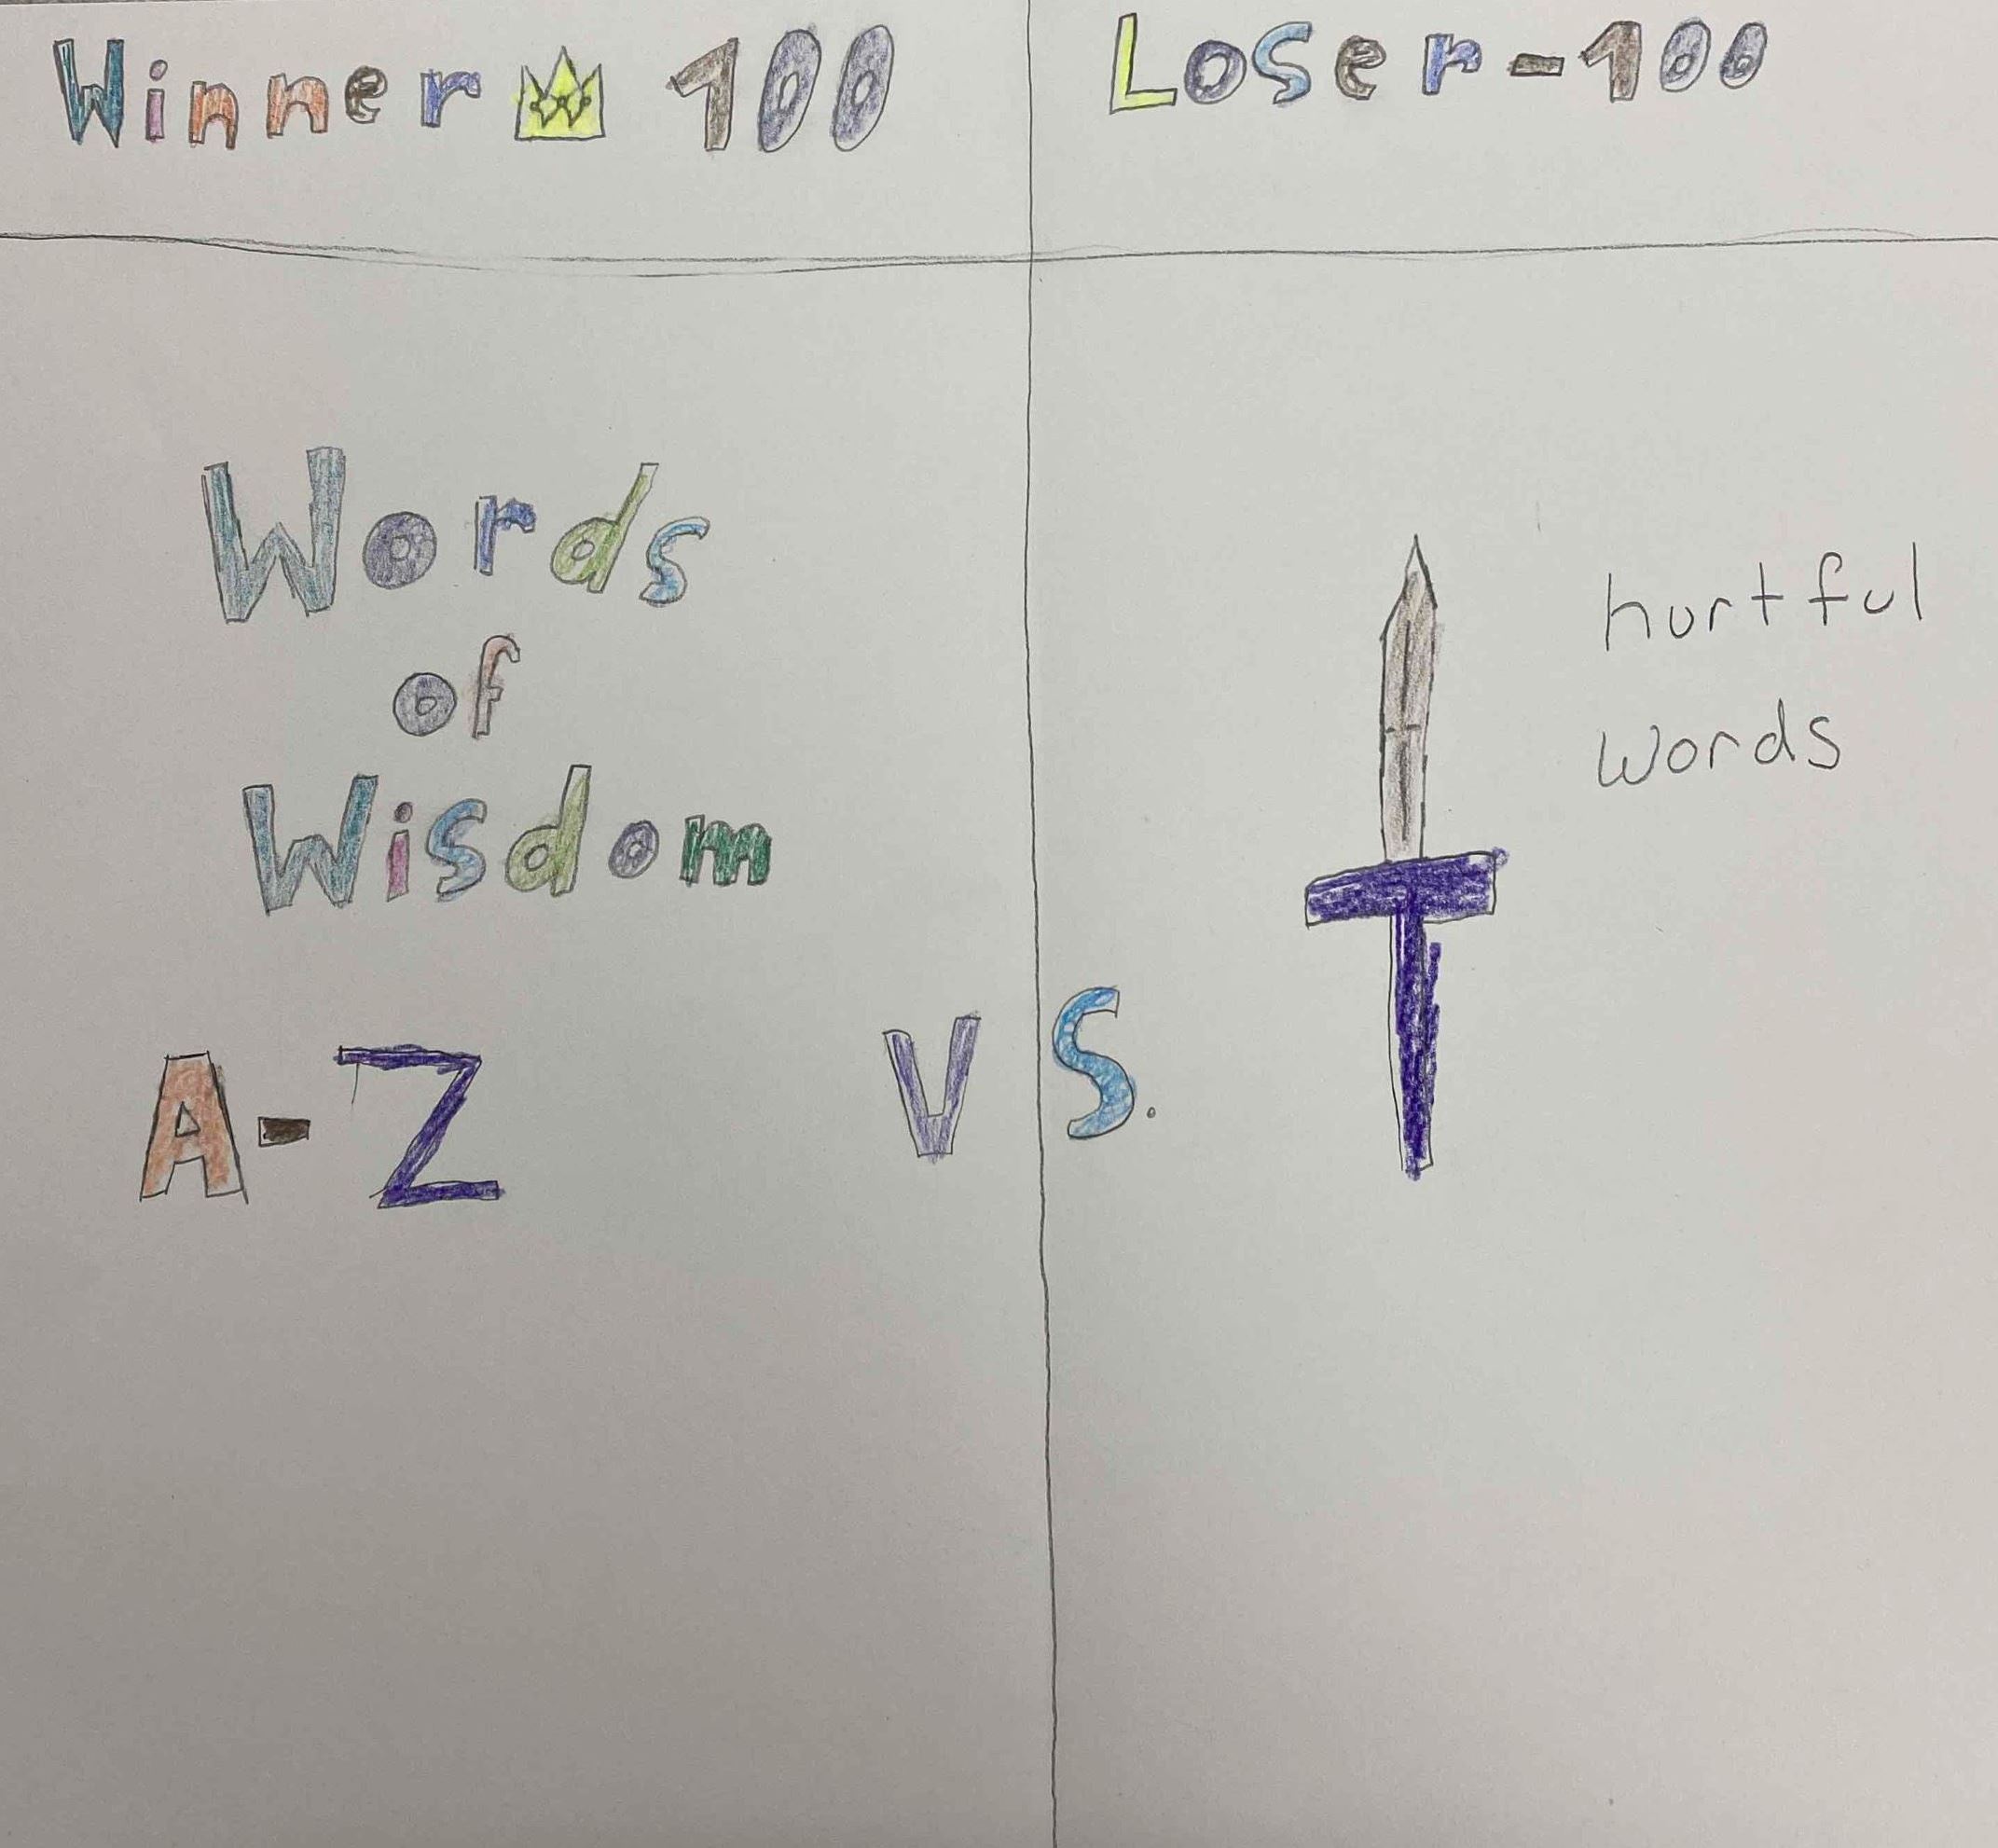 Winner 100
Loser-100
Words
of
Wisdom
A-Z
VS.
hurtful
words